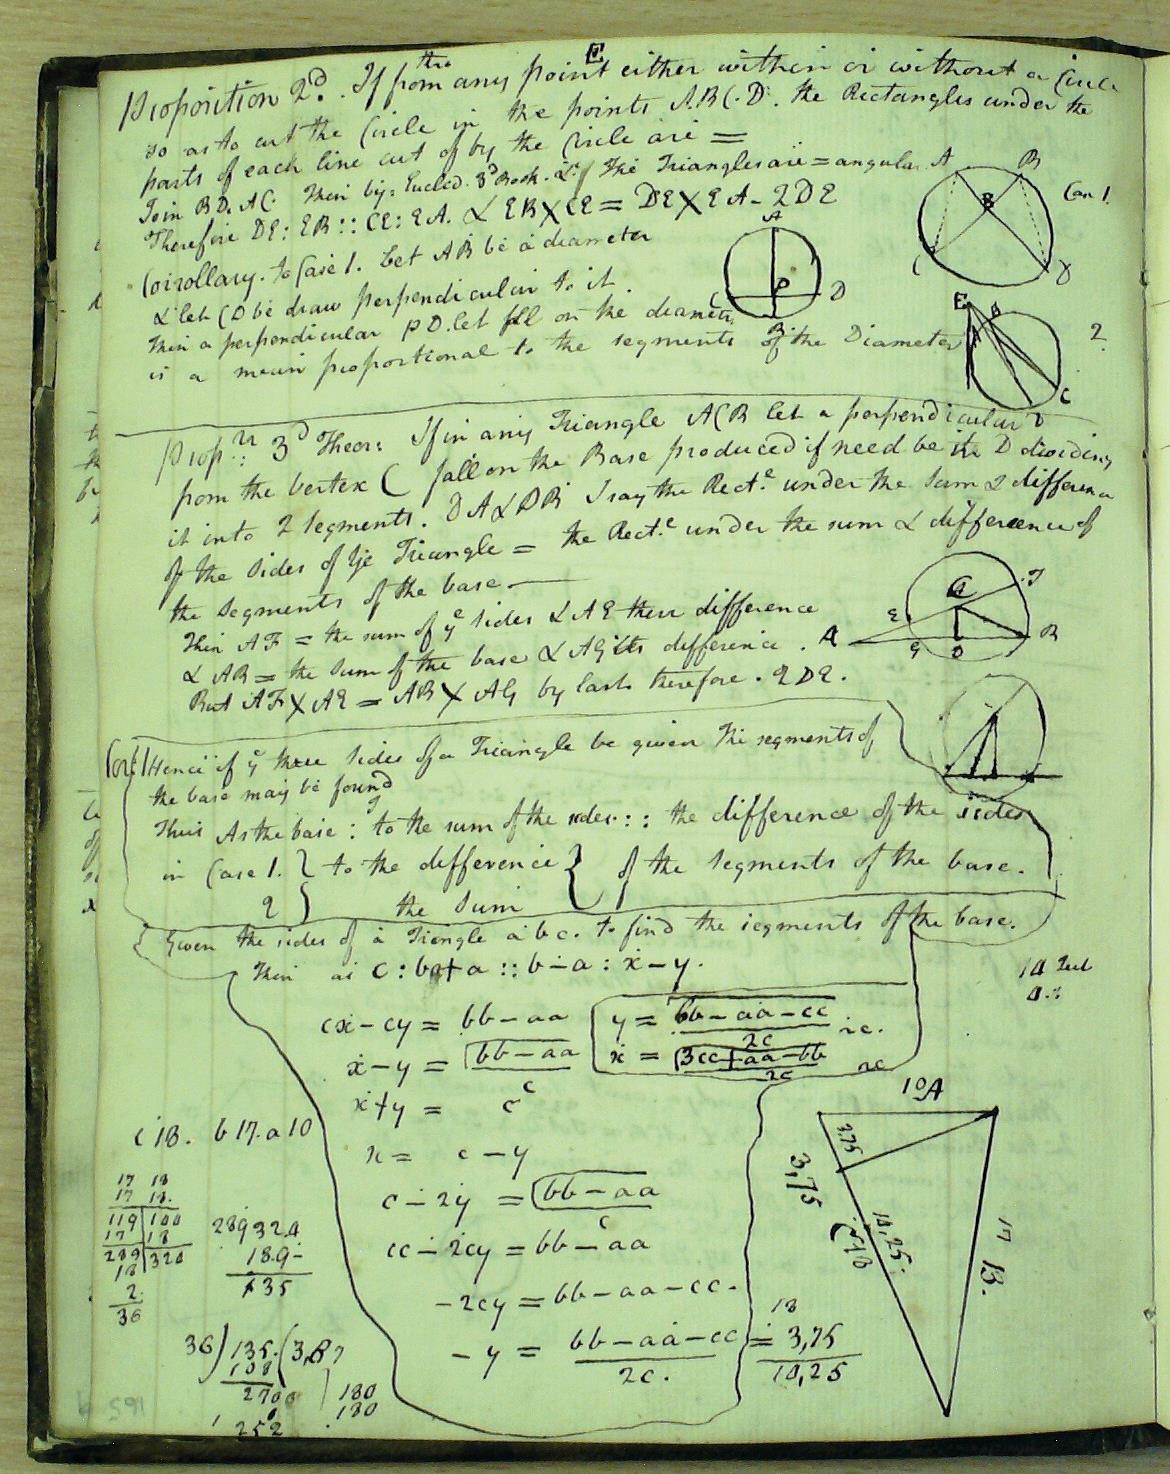 E
Proposition 2d. If from any point either within or without a Circle
so as to cut the Circle in the points A.B.C.D. the Rectangles under the
parts of each line cut of by the Circle are =
Join BD. AC. Then by Euclid. 3d Book. & the Triangles are = angular.
Therefore DE : EB :: CE : EA. & EB × CE = DE × EA - 2DE
A B
B
C D
Cas 1.
Corrollary. to Case 1. Let AB be a diameter
& let CD be draw perpendicular to it.
Then a perpendicular PD. let fll on the diameter
is a mean proportional to the segments of the Diameter
A
C P D
B
E B
A
C
2.
Prop.n 3d Theor: If in any Triangle ACB let a perpendicular
from the Vertex C fall on the Base produced if need be in D dividing
it into 2 Segments. DA & DB I say the Rect.e under the Sum & difference
of the Sides of ye Triangle = the Rect.e under the sum & difference of
the Segments of the base
Then AF = the sum of ye sides & AE their difference
& AB = the Sum of the base & AG its difference.
But AF × AE = AB × AG by last therefore. QDE.
C F
E
A G D B
Cor: 1 Hence if ye three sides of a Triangle be given the segments of
the base may be found
Thus As the base : to the sum of the sides :: the difference of the sides
in Case 1. } to the difference } of the Segments of the base.
2 } the Sum
Given the sides of a Triangle abc. to find the segments of the base.
Then as c : b+a :: b-a : x-y.
cx - cy = bb - aa
x - y = bb - aa
c
x + y = c
x = c - y
c - 2y = bb - aa
c
cc - 2cy = bb - aa
-2cy = bb - aa - cc.
-y = bb - aa - cc
2c.
y = bb - aa - cc
2c
x = 3cc + aa - bb
2c
18
= 3,75
14,25
c 18. b 17. a 10
17 18
17 18.
119 100
17 18
289 324
18
2
36
289 324
189
135
36) 135. (3,87
108
2700
252
180
180
10 A
3.75
3,75
14,25.
C 18
17
B.